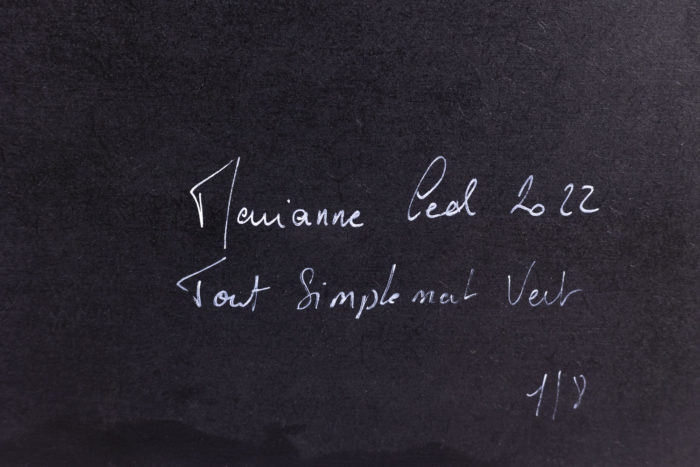 Marianne Ceal 2022
Tout Simplement Vert
1/8